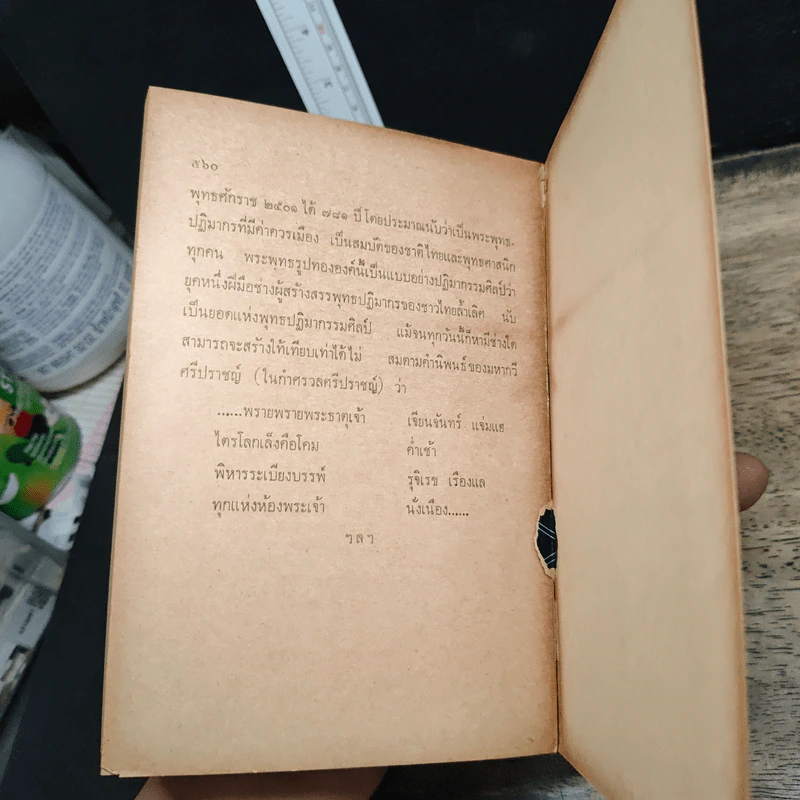 ๕๖๐
พุทธศักราช ๒๕๐๑ ได้ ๗๘๑ ปี โดยประมาณนับว่าเป็นพระพุทธ-
ปฏิมากรที่มีค่าควรเมือง เป็นสมบัติของชาติไทยและพุทธศาสนิก
ทุกคน พระพุทธรูปทององค์นี้เป็นแบบอย่างปฏิมากรรมศิลป์ว่า
ยุคหนึ่งฝีมือช่างผู้สร้างสรรพุทธปฏิมากรของชาวไทยล้ำเลิศ นับ
เป็นยอดแห่งพุทธปฏิมากรรมศิลป์ แม้จนทุกวันนี้ก็หามีช่างใด
สามารถจะสร้างให้เทียบเท่าได้ไม่ สมตามคำนิพนธ์ของมหากวี
ศรีปราชญ์ (ในกำศรวลศรีปราชญ์) ว่า
......พรายพรายพระธาตุเจ้า เจียนจันทร์ แจ่มแฮ
ไตรโลกเล็งคือโคม ค่ำเช้า
พิหารระเบียงบรรพ์ รุจิเรข เรืองแล
ทุกแห่งห้องพระเจ้า นั่งเนือง......